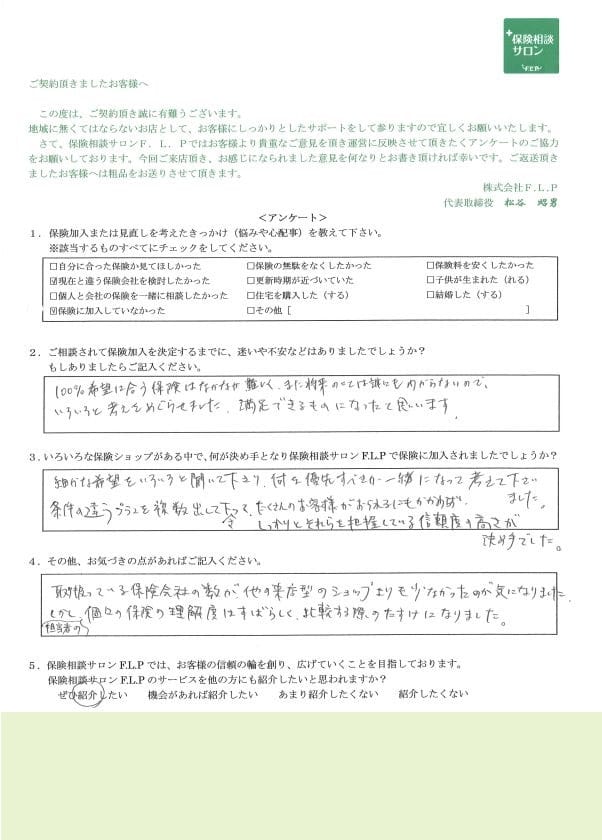 保険相談
サロン
F.L.P
ご契約頂きましたお客様へ
この度は、ご契約頂き誠に有難うございます。
地域に無くてはならないお店として、お客様にしっかりとしたサポートをして参りますので宜しくお願いいたします。
さて、保険相談サロンF．L．Pではお客様より貴重なご意見を頂き運営に反映させて頂きたくアンケートのご協力
をお願いしております。今回ご来店頂き、お感じになられました意見を何なりとお書き頂ければ幸いです。ご返送頂き
ましたお客様へは粗品をお送りさせて頂きます。
株式会社F.L.P
代表取締役 松谷 昭男
＜アンケート＞
1．保険加入または見直しを考えたきっかけ（悩みや心配事）を教えて下さい。
※該当するものすべてにチェックをしてください。
□自分に合った保険か見てほしかった □保険の無駄をなくしたかった □保険料を安くしたかった
☑現在と違う保険会社を検討したかった □更新時期が近づいていた □子供が生まれた（れる）
□個人と会社の保険を一緒に相談したかった □住宅を購入した（する） □結婚した（する）
☑保険に加入していなかった □その他［ ］
2．ご相談されて保険加入を決定するまでに、迷いや不安などはありましたでしょうか？
もしありましたらご記入ください。
100%希望に合う保険はなかなか難しく、また将来のことは誰にもわからないので、
いろいろと考えをめぐらせました。満足できるものになったと思います。
3．いろいろな保険ショップがある中で、何が決め手となり保険相談サロンF.L.Pで保険に加入されましたでしょうか？
細かな希望をいろいろと聞いて下さり、何を優先すべきか一緒になって考えて下さい
ました。
条件の違うプランを複数出して下さって、たくさんのお客様がおられるにもかかわらず
しっかりとそれらを把握している信頼度の高さが
決め手でした。
4．その他、お気づきの点があればご記入ください。
取扱っている保険会社の数が他の来店型のショップよりも少なかったのが気になりました。
しかし、個々の保険の理解度はすばらしく、比較する際のたすけになりました。
担当者の
5．保険相談サロンF.L.Pでは、お客様の信頼の輪を創り、広げていくことを目指しております。
保険相談サロンF.L.Pのサービスを他の方にも紹介したいと思われますか？
ぜひ紹介したい 機会があれば紹介したい あまり紹介したくない 紹介したくない